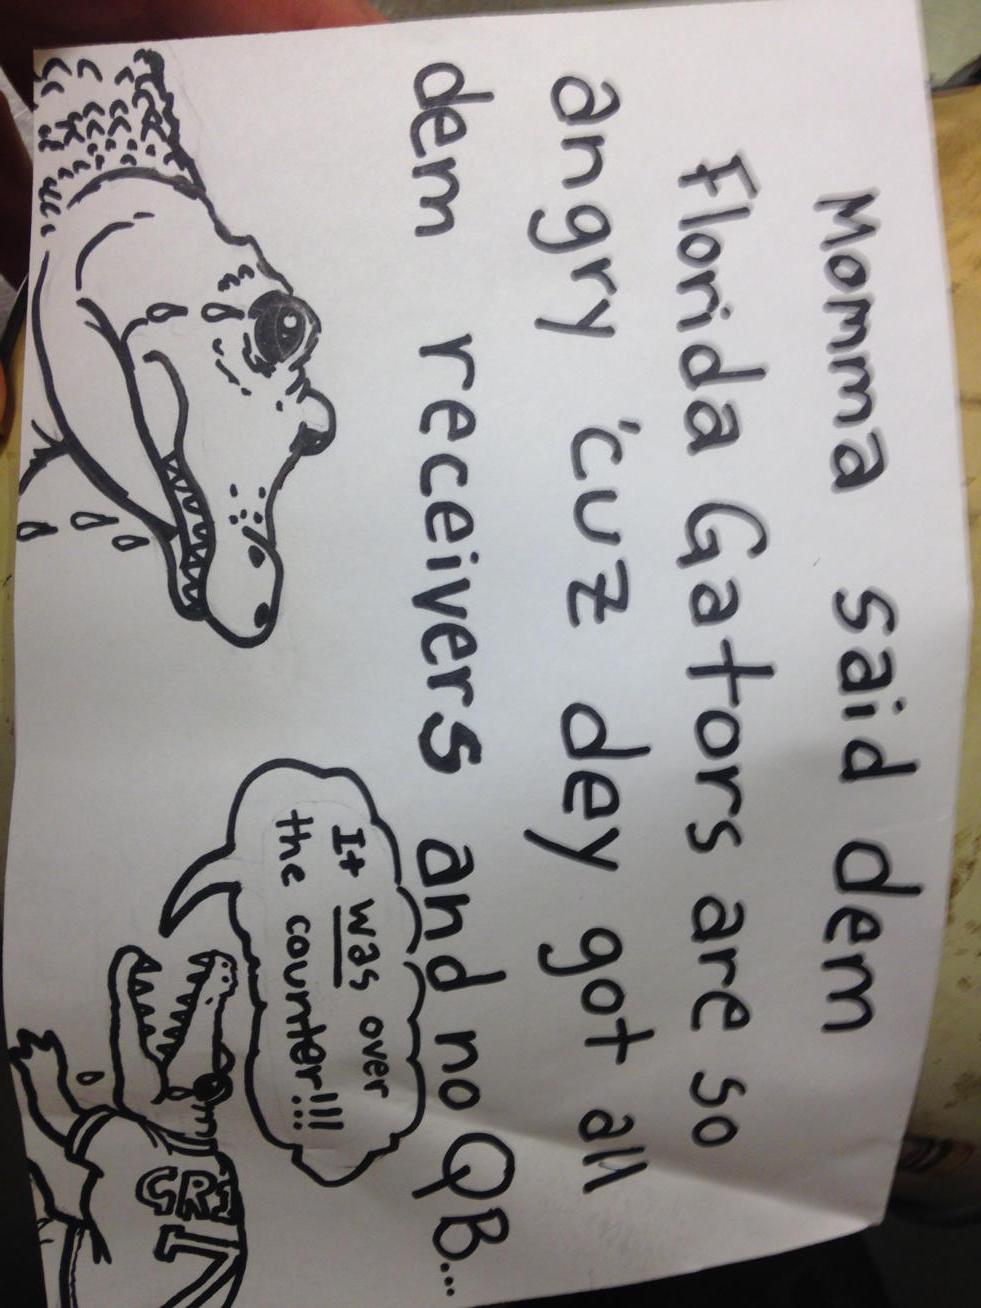 Momma said dem
Florida Gators are so
angry 'cuz dey got all
dem receivers and no QB...
It was over
the counter!!!